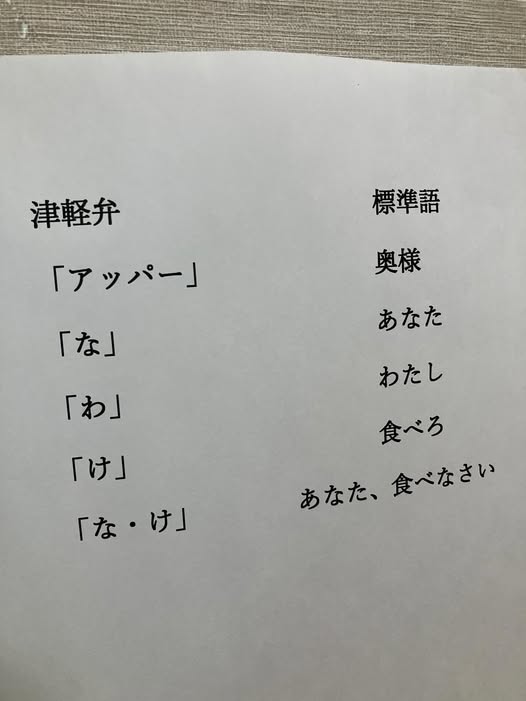 津軽弁 標準語
「アッパー」 奥様
「な」 あなた
「わ」 わたし
「け」 食べろ
「な・け」 あなた、食べなさい